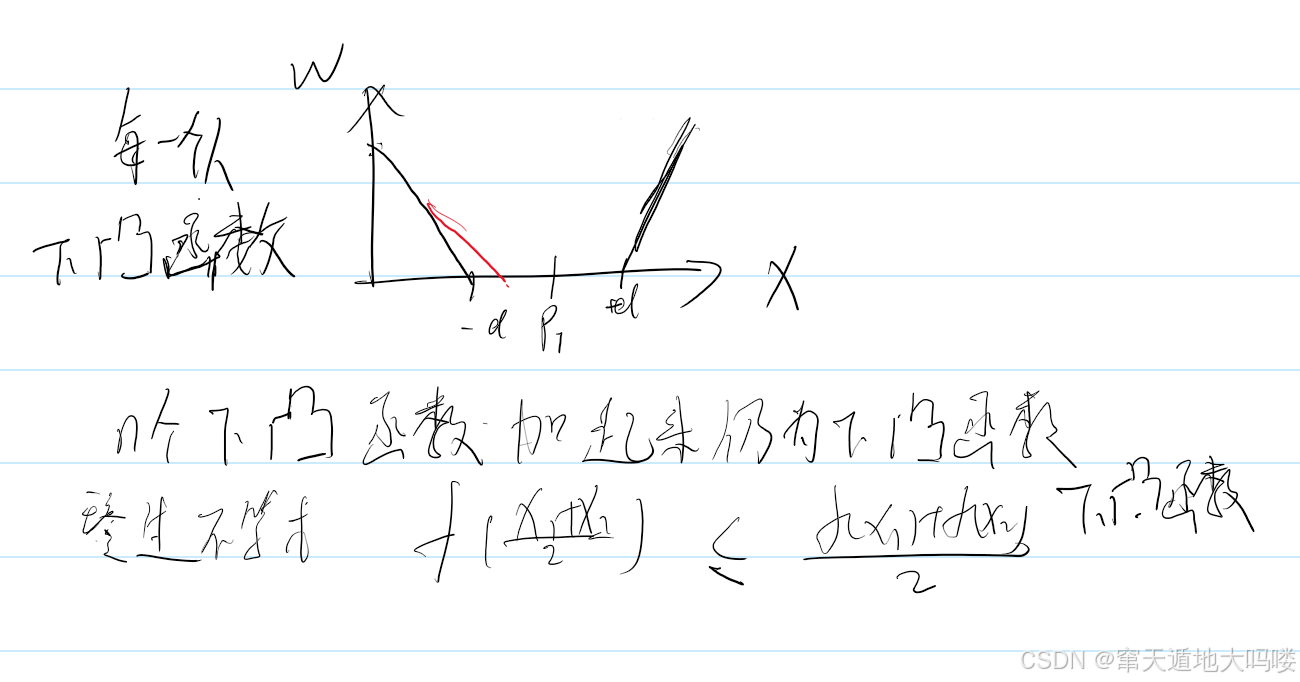 W
每一个人
下凸函数
-d P1 +d X
n个下凸函数 加起来仍为下凸函数
不等式 f(x1+x2/2) ≤ f(x1)+f(x2)/2 下凸函数
CSDN @窜天遁地大吗喽